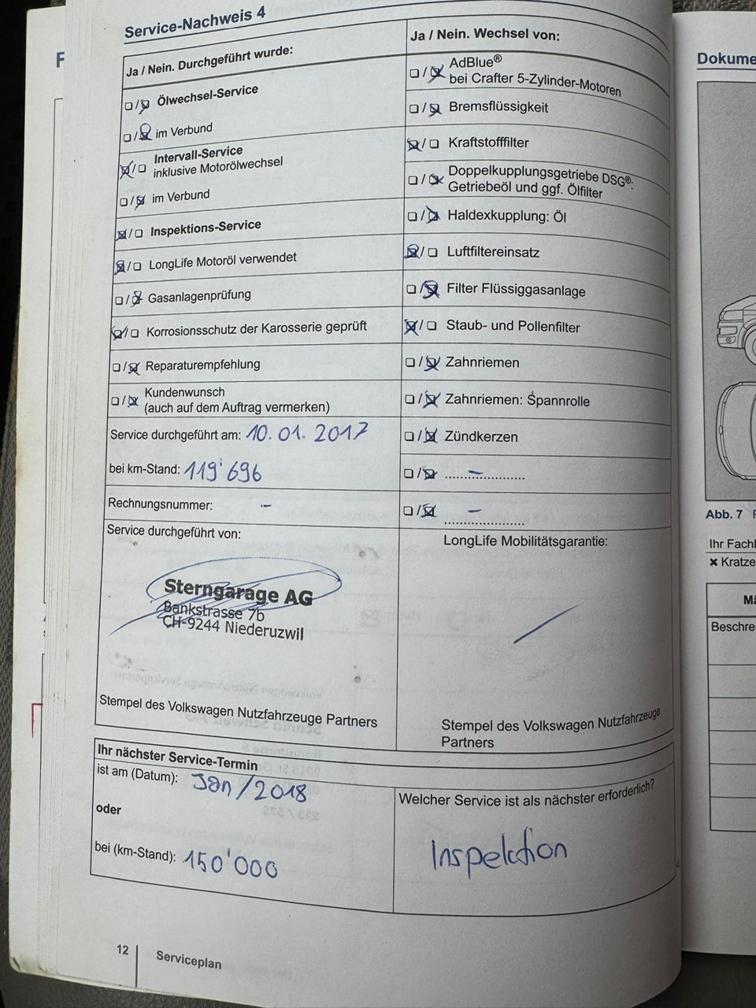 Service-Nachweis 4
Ja / Nein. Durchgeführt wurde:
☐/☒ Ölwechsel-Service
☐/☒ im Verbund
☒/☐ Intervall-Service
inklusive Motorölwechsel
☐/☒ im Verbund
☒/☐ Inspektions-Service
☒/☐ LongLife Motoröl verwendet
☐/☒ Gasanlagenprüfung
☒/☐ Korrosionsschutz der Karosserie geprüft
☐/☒ Reparaturempfehlung
☐/☒ Kundenwunsch
(auch auf dem Auftrag vermerken)
Service durchgeführt am: 10.01.2017
bei km-Stand: 119'696
Rechnungsnummer: -
Service durchgeführt von:
Sterngarage AG
Bankstrasse 7b
CH-9244 Niederuzwil
Stempel des Volkswagen Nutzfahrzeuge Partners
Ja / Nein. Wechsel von:
☐/☒ AdBlue®
bei Crafter 5-Zylinder-Motoren
☐/☒ Bremsflüssigkeit
☒/☐ Kraftstofffilter
☐/☒ Doppelkupplungsgetriebe DSG®:
Getriebeöl und ggf. Ölfilter
☐/☒ Haldexkupplung: Öl
☒/☐ Luftfiltereinsatz
☐/☒ Filter Flüssiggasanlage
☒/☐ Staub- und Pollenfilter
☐/☒ Zahnriemen
☐/☒ Zahnriemen: Spannrolle
☐/☒ Zündkerzen
☐/☒ -
☐/☒ -
LongLife Mobilitätsgarantie:
Stempel des Volkswagen Nutzfahrzeuge
Partners
Ihr nächster Service-Termin
ist am (Datum): Jan/2018
oder
bei (km-Stand): 150'000
Welcher Service ist als nächster erforderlich?
Inspektion
12 Serviceplan
Dokume
Abb. 7
Ihr Fachl
× Kratze
Beschre